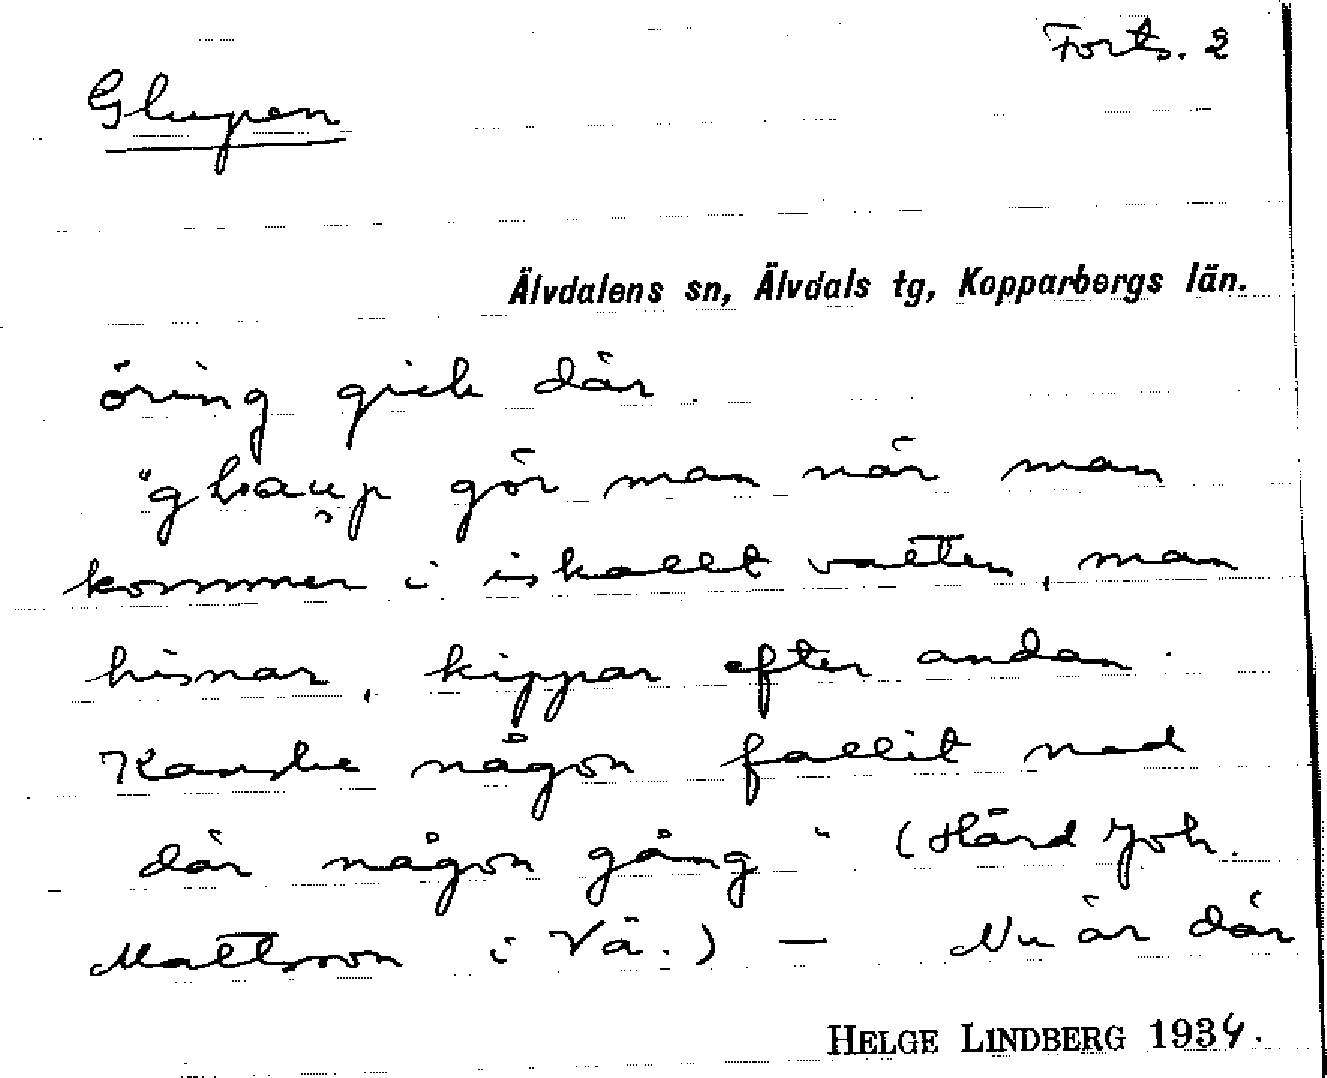 Forts. 2
Glupen
Älvdalens sn, Älvdals tg, Kopparbergs län.
öring gick där.
"glaup gör man när man
kommer i iskallt vatten, man
hisnar, kippar efter andan.
Kanske någon fallit ned
där någon gång" (Hård Joh.
Mattsson i Vä.) — Nu är där
HELGE LINDBERG 1934.